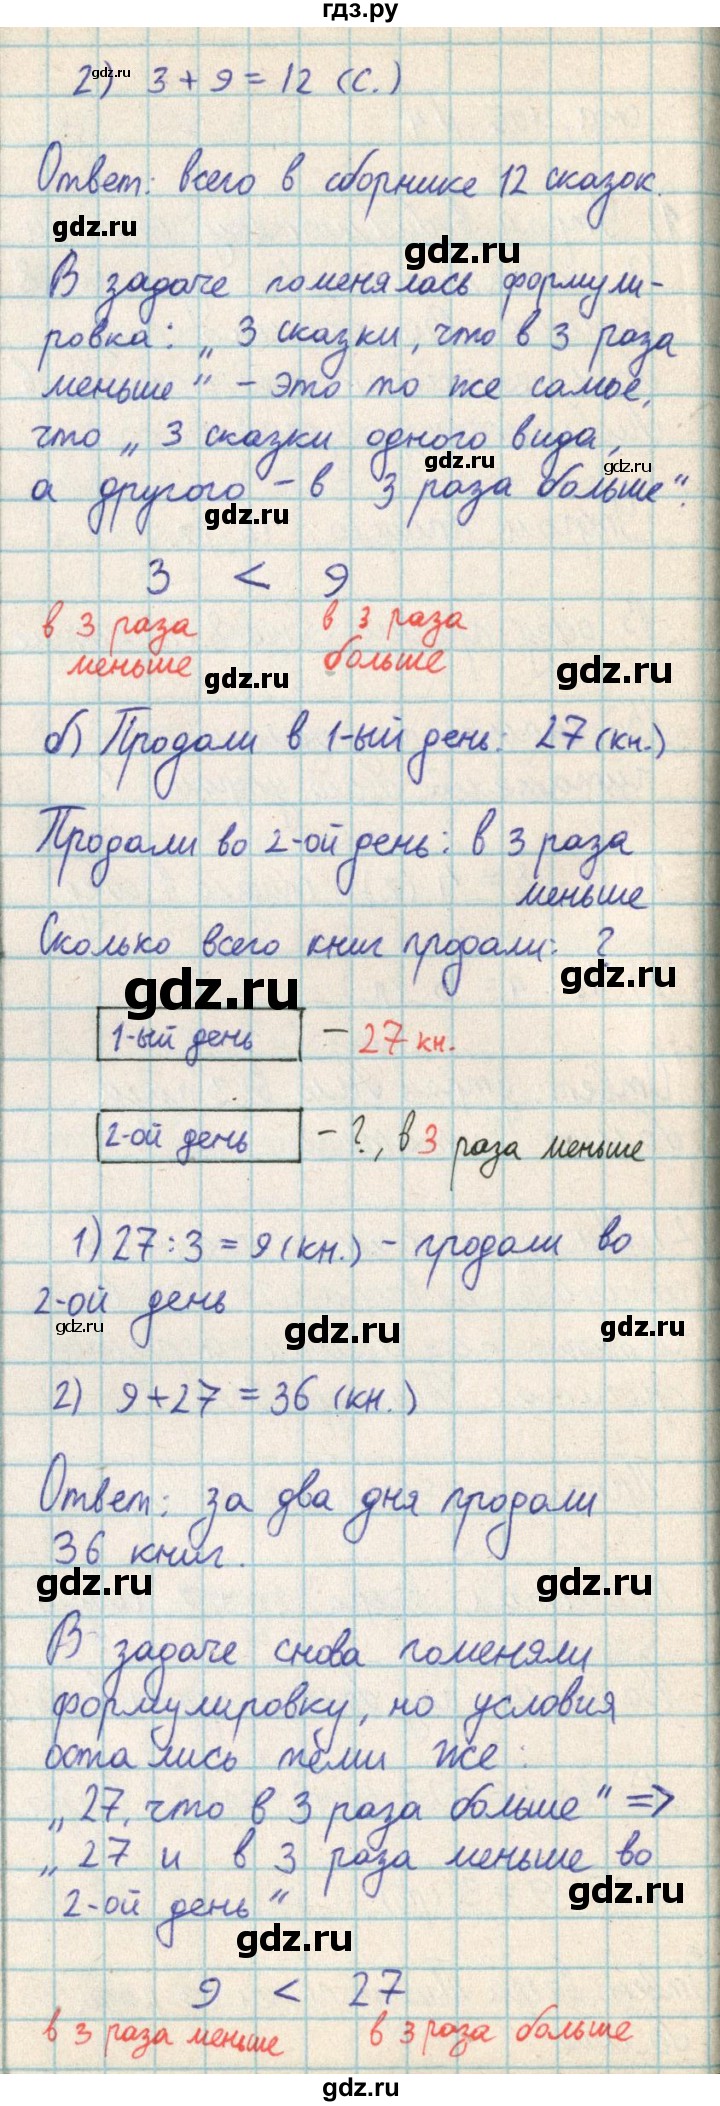 гдз.ру
2) 3 + 9 = 12 (с.)
gdz.ru
Ответ: всего в сборнике 12 сказок.
gdz.ru
gdz.ru
В задаче поменялась формули-
ровка: „ 3 сказки, что в 3 раза
меньше" – это то же самое,
что „ 3 сказки одного вида,
gdz.ru
gdz.ru
а другого – в 3 раза больше".
gdz.ru
3 < 9
в 3 раза в 3 раза
меньше больше
gdz.ru
gdz.ru
б) Продали в 1-ый день: 27 (кн.)
Продали во 2-ой день: в 3 раза
меньше
Сколько всего книг продали: ?
gdz.ru
gdz.ru
1-ый день – 27 кн.
2-ой день – ?, в 3 раза меньше
1) 27 : 3 = 9 (кн.) – продали во
2-ой день
gdz.ru
gdz.ru
gdz.ru
2) 9 + 27 = 36 (кн.)
Ответ: за два дня продали
36 книг.
gdz.ru
gdz.ru
В задаче снова поменяли
формулировку, но условия
остались теми же:
„ 27, что в 3 раза больше" =>
„ 27 и в 3 раза меньше во
2-ой день"
gdz.ru
gdz.ru
9 < 27
в 3 раза меньше в 3 раза больше
gdz.ru